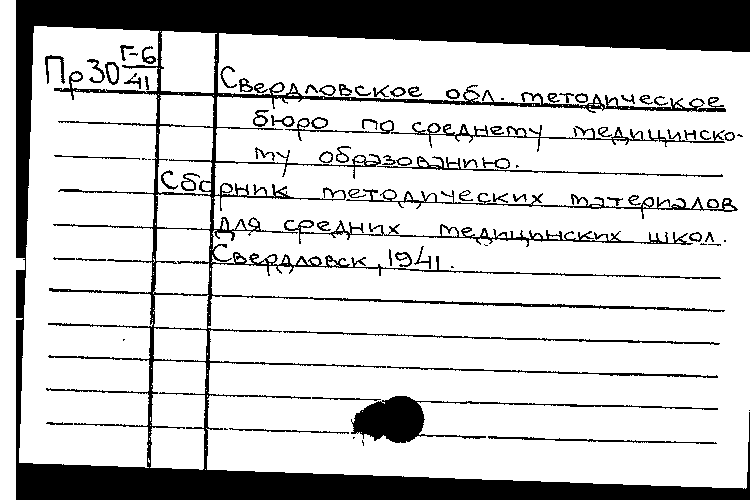 Пр30 Г-6/41
Свердловское обл. методическое
бюро по среднему медицинско-
му образованию.
Сборник методических материалов
для средних медицинских школ.
Свердловск, 1941.